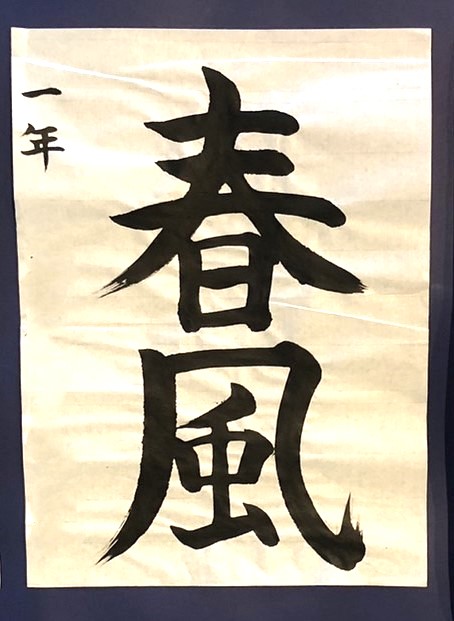 春風
一年